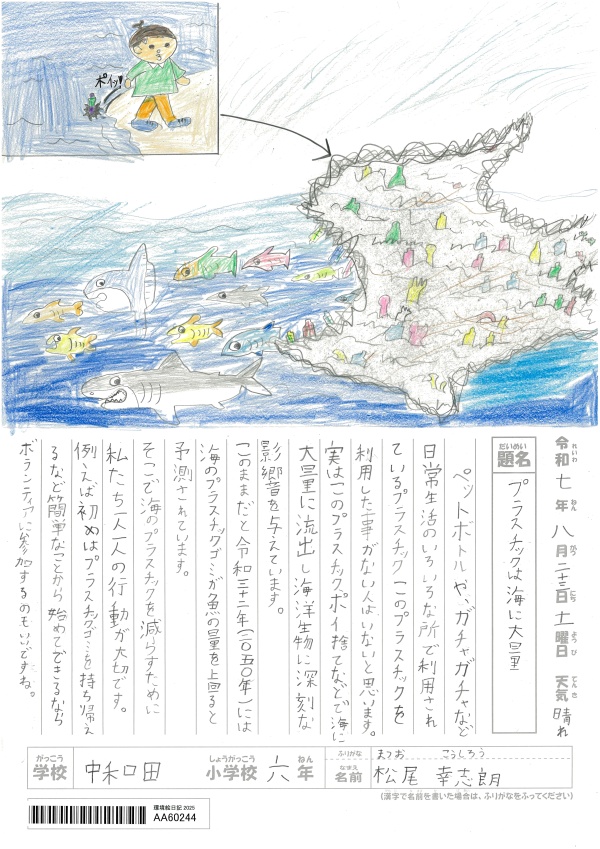 ポイッ!
令和七年八月二十三日土曜日 天気 晴れ
れいわ ねん がつ にち ようび てんき
だいめい
題名
プラスチックは海に大量
ペットボトルや、ガチャガチャなど
日常生活のいろいろな所で利用され
ているプラスチックこのプラスチックを
利用した事がない人はいないと思います。
実はこのプラスチック、ポイ捨てなどで海に
大量に流出し海洋生物に深刻な
影響を与えています。
このままだと令和三十二年(二〇五〇年)には
海のプラスチックゴミが魚の量を上回ると
予測されています。
そこで海のプラスチックを減らすために
私たち一人一人の行動が大切です。
例えば初めはプラスチックゴミを持ち帰え
るなど簡単なことから始めてできるなら
ボランティアに参加するのもいいですね。
がっこう しょうがっこう ねん ふりがな まつお こうしろう
学校 中和田 小学校 六年 なまえ 名前 松尾 幸志朗
(漢字で名前を書いた場合は、ふりがなをふってください)
環境絵日記 2025
AA60244